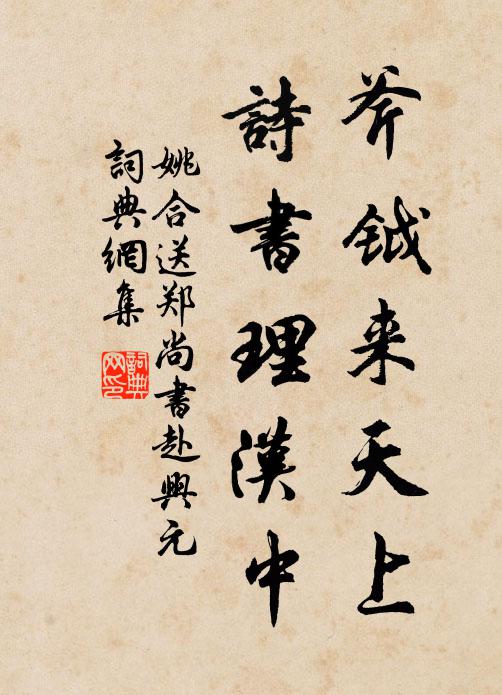 斧钺来天上
詩書理漢中
姚合送郑尚書赴興元
詞典網集
詞典
网印